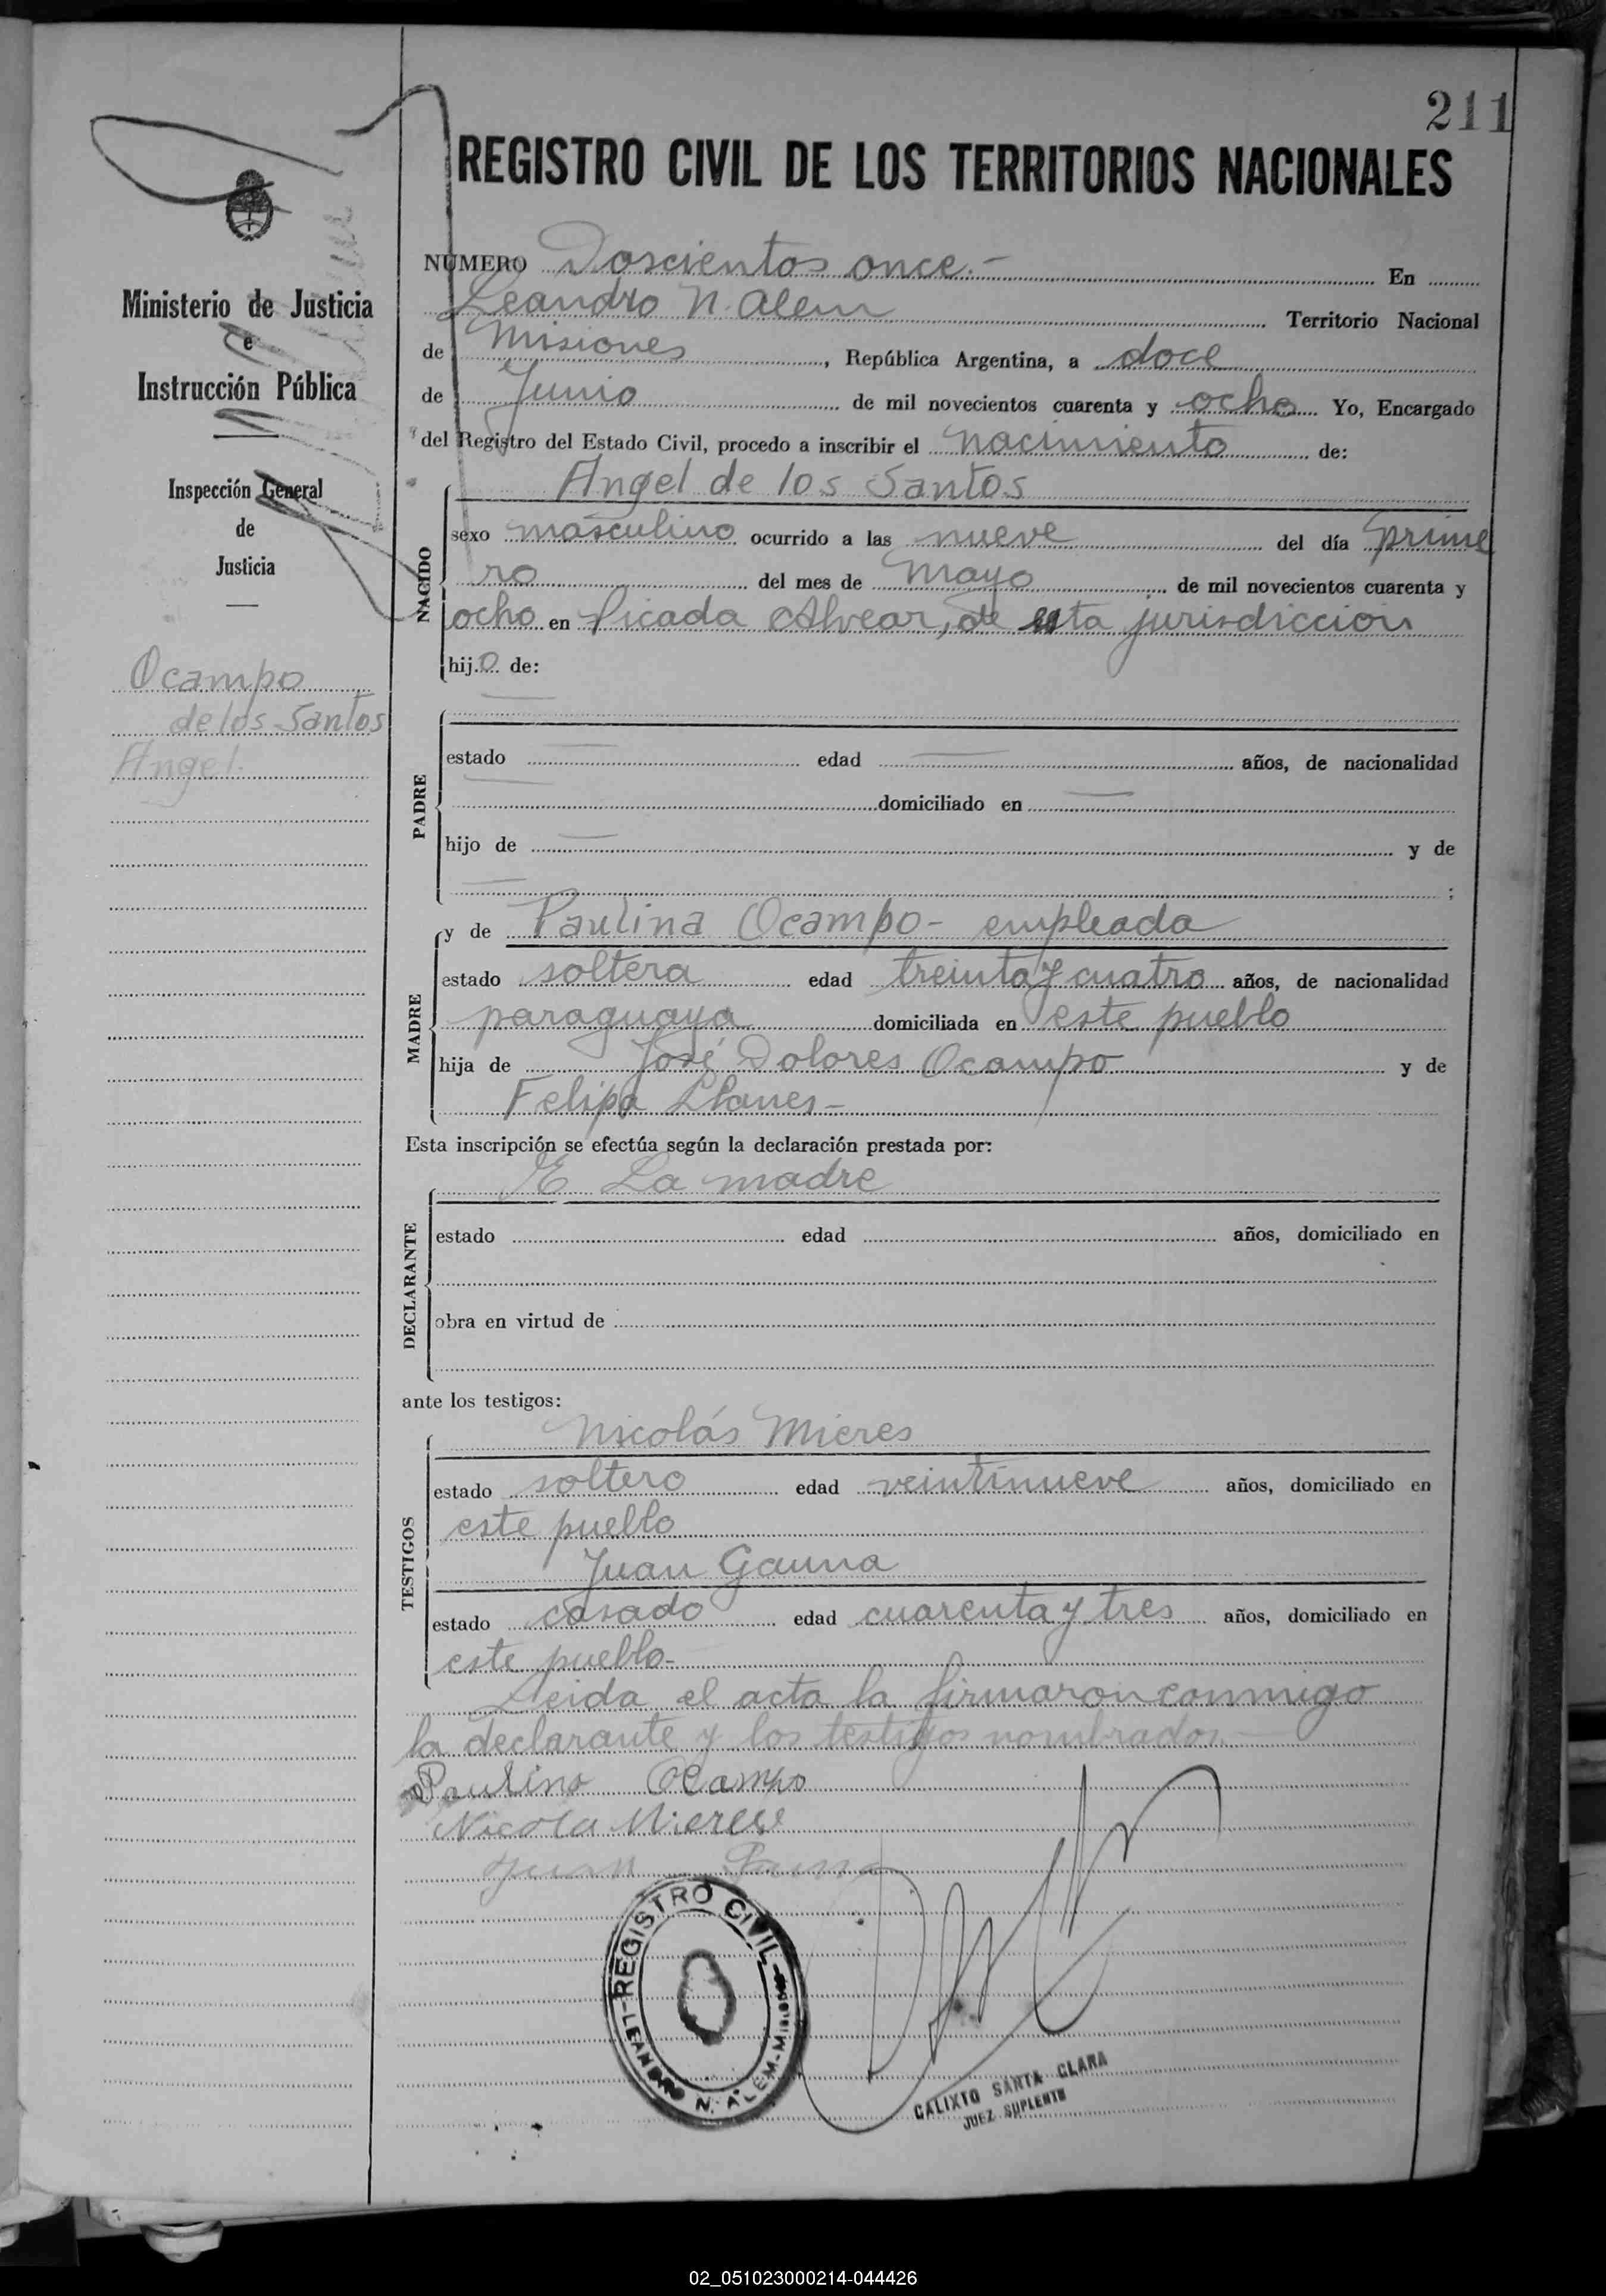 211
REGISTRO CIVIL DE LOS TERRITORIOS NACIONALES
Ministerio de Justicia
e
Instrucción Pública
Inspección General
de
Justicia
Ocampo
de los Santos
Angel.
NUMERO Doscientos once.- En
Leandro N. Alem Territorio Nacional
de Misiones, República Argentina, a doce
de Junio de mil novecientos cuarenta y ocho Yo, Encargado
del Registro del Estado Civil, procedo a inscribir el nacimiento de:
Angel de los Santos
NACIDO
sexo masculino ocurrido a las nueve del día prime
ro del mes de mayo de mil novecientos cuarenta y
ocho en Picada Alvear, de esta jurisdiccion
hijo de:
PADRE
estado edad años, de nacionalidad
domiciliado en
hijo de y de
;
MADRE
y de Paulina Ocampo- empleada
estado soltera edad treinta y cuatro años, de nacionalidad
paraguaya domiciliada en este pueblo
hija de José Dolores Ocampo y de
Felipa Llanes-
Esta inscripción se efectúa según la declaración prestada por:
La madre
DECLARANTE
estado edad años, domiciliado en
obra en virtud de
ante los testigos:
Nicolás Mieres
TESTIGOS
estado soltero edad veintinueve años, domiciliado en
este pueblo
Juan Gauna
estado casado edad cuarenta y tres años, domiciliado en
este pueblo-
Leida el acta la firmaron conmigo
la declarante y los testigos nombrados.-
Paulina Ocampo
Nicola Mieres
Juan Gauna
REGISTRO CIVIL
LEANDRO N. ALEM-Misiones
CALIXTO SANTA CLARA
JUEZ SUPLENTE
02_051023000214-044426